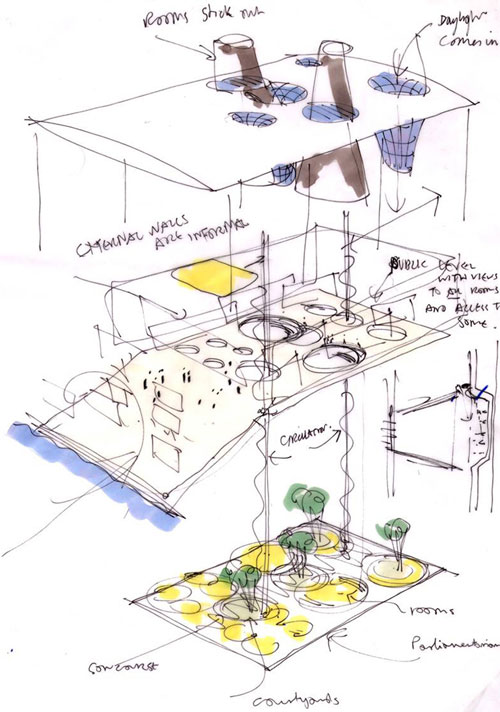 Rooms stick out
Daylight
comes in
EXTERNAL WALLS
ARE INFORMAL
PUBLIC LEVEL
WITH VIEWS
TO ALL ROOMS
AND ACCESS T
SOME.
CIRCULATION.
rooms
Parliamentarian
concourse
courtyards